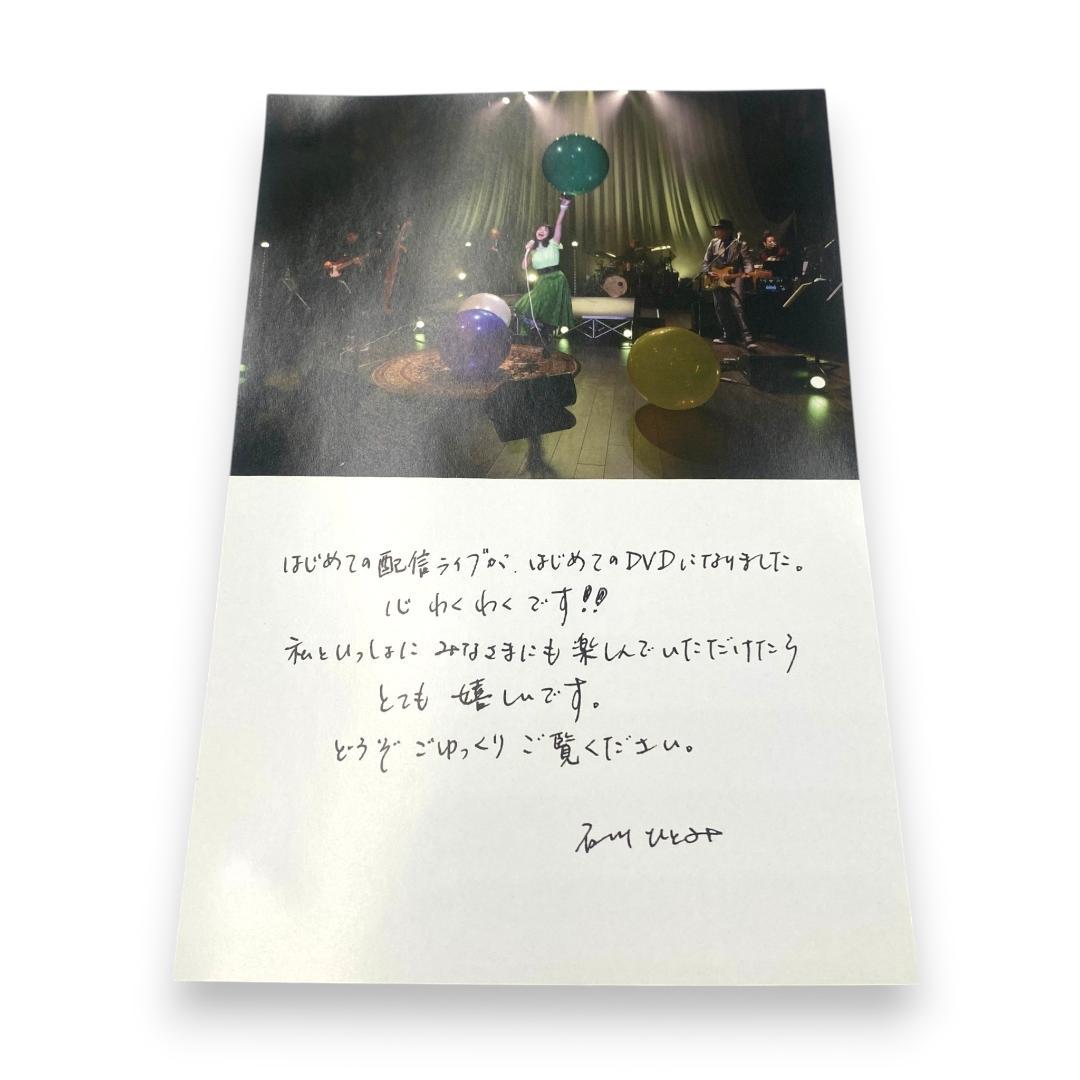 はじめての配信ライブが、はじめてのDVDになりました。
心 わくわくです!!
私といっしょに みなさまにも楽しんでいただけたら
とても 嬉しいです。
どうぞ ごゆっくり ご覧ください。
石川 ひとみ